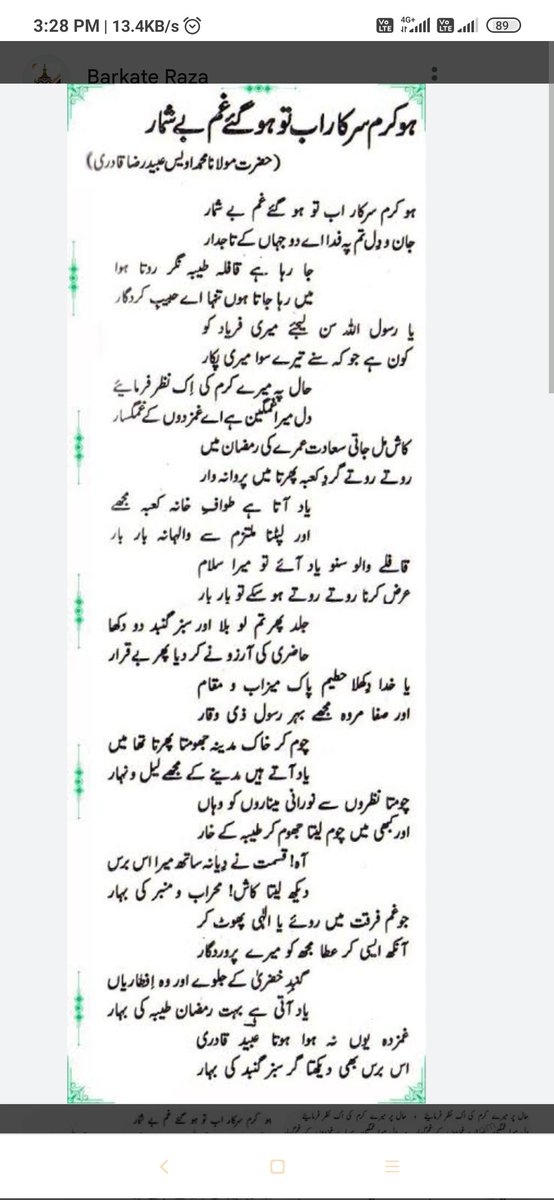 3:28 PM | 13.4KB/s
4G+
89
Barkate Raza
ہو کرم سرکار اب تو ہو گئے غم بے شمار
(حضرت مولانا محمد اویس عبید رضا قادری)
ہو کرم سرکار اب تو ہو گئے غم بے شمار
جان و دل تم پہ فدا اے دو جہاں کے تاجدار
جا رہا ہے قافلہ طیبہ نگر روتا ہوا
میں رہا جاتا ہوں تنہا اے حبیب کردگار
یا رسول اللہ سن لیجئے میری فریاد کو
کون ہے جو کہ سنے تیرے سوا میری پکار
حال پہ میرے کرم کی اک نظر فرمایئے
دل میرا غمگین ہے اے غمزدوں کے غمگسار
کاش مل جاتی سعادت عمرے کی رمضان میں
روتے روتے گردِ کعبہ پھرتا میں پروانہ وار
یاد آتا ہے طوافِ خانہ کعبہ مجھے
اور لپٹنا ملتزم سے والہانہ بار بار
قافلے والو سنو یاد آئے تو میرا سلام
عرض کرنا روتے روتے ہو سکے تو بار بار
جلد پھر تم لو بلا اور سبز گنبد دو دکھا
حاضری کی آرزو نے کر دیا پھر بے قرار
یا خدا دکھلا حطیم پاک میزاب و مقام
اور صفا مروہ مجھے بہر رسول ذی وقار
چوم کر خاک مدینہ جھومتا پھرتا تھا میں
یاد آتے ہیں مدینے کے مجھے لیل و نہار
چومتا نظروں سے نورانی میناروں کو وہاں
اور کبھی میں چوم لیتا جھوم کر طیبہ کے خار
آہ! قسمت نے دیا نہ ساتھ میرا اس برس
دیکھ لیتا کاش! محراب و منبر کی بہار
جو غم فرقت میں روئے یا الٰہی پھوٹ کر
آنکھ ایسی کر عطا مجھ کو میرے پروردگار
گنبدِ خضریٰ کے جلوے اور وہ افطاریاں
یاد آتی ہے بہت رمضان طیبہ کی بہار
غمزدہ یوں نہ ہوا ہوتا عبید قادری
اس برس بھی دیکھتا گر سبز گنبد کی بہار
ہو کرم سرکار اب تو ہو گئے غم بے شمار
حال پر میرے کرم کی اک نظر فرمایئے